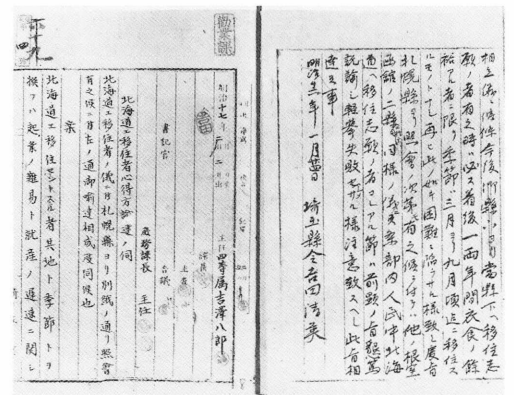 今後 県下ヨリ当県下ヘ移住志
願ノ者有之時ハ必ス着後一両年間衣食ノ余
裕アル者ニ限リ季節ハ三月ヨリ九月頃迄ニ移住ス
ルモノトナシ再ヒ此ノ如キ困難ニ陥ラサル様致シ度旨
札幌縣ヨリ照會ノ次第有之候ニ付テハ他ノ根室
函館ノ二縣モ同様ノ儀ニ付 郡内人民中北海
道ヘ移住志願ノ者コレアル節ハ前顕ノ旨懇篤
説諭シ軽挙失敗セサル様注意致スヘシ此旨相
達候事
明治 年 一月廿四日 埼玉縣令吉田清英
勧業課
明治十七年 一月 日
主任 四等属吉澤八郎
書記官
課長 主任
北海道ニ移住者心得方諭達ノ伺
北海道ニ移住者ノ儀ニ付札幌縣ヨリ別紙ノ通リ照會
有之候ニ付左ノ通御諭達相成度伺候也
案
北海道ニ移住セントスル者其地ト季節トヲ
撰フハ起業ノ難易ト就産ノ遅速ニ関シ